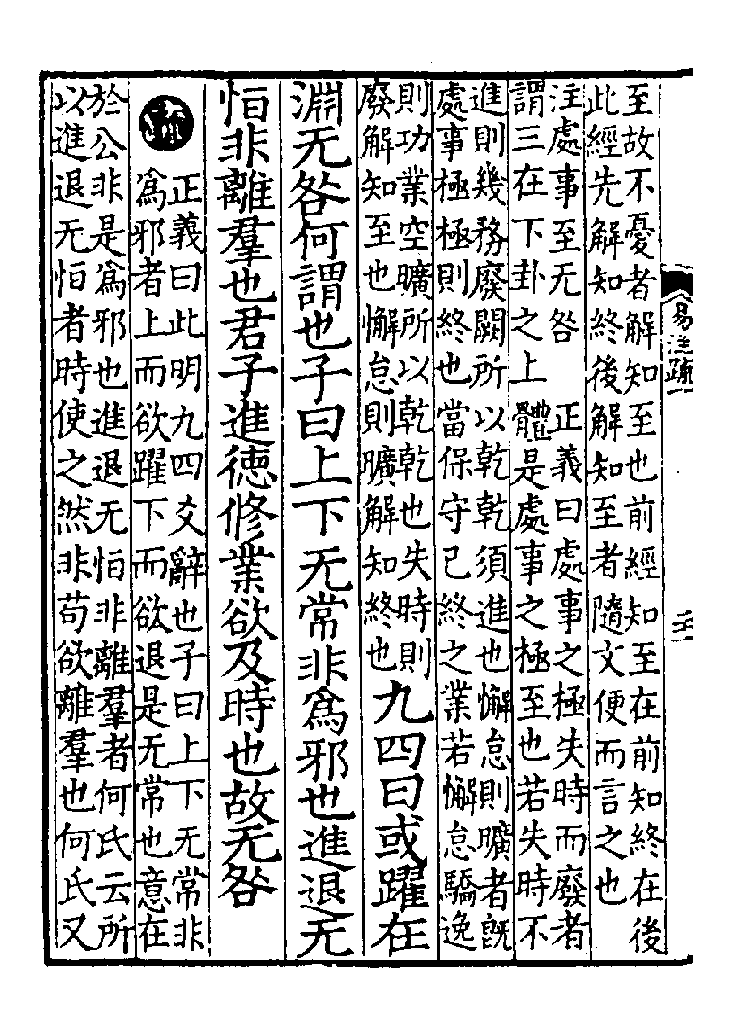 至故不憂者解知至也前經知至在前知終在後
此經先解知終後解知至者隨文便而言之也
注處事至无咎　正義曰處事之極失時而廢者
謂三在下卦之上　體是處事之極至也若失時不
進則幾務廢闕所以乾乾須進也懈怠則曠者旣
處事極極則終也當保守已終之業若懈怠驕逸
則功業空曠所以乾乾也失時則
廢解知至也懈怠則曠解知終也
九四曰或躍在
淵无咎何謂也子曰上下无常非爲邪也進退无
恒非離羣也君子進德修業欲及時也故无咎
疏
正義曰此明九四爻辭也子曰上下无常非
爲邪者上而欲躍下而欲退是无常也意在
於公非是爲邪也進退无恒非離羣者何氏云所
以進退无恒者時使之然非苟欲離羣也何氏又
易注疏一